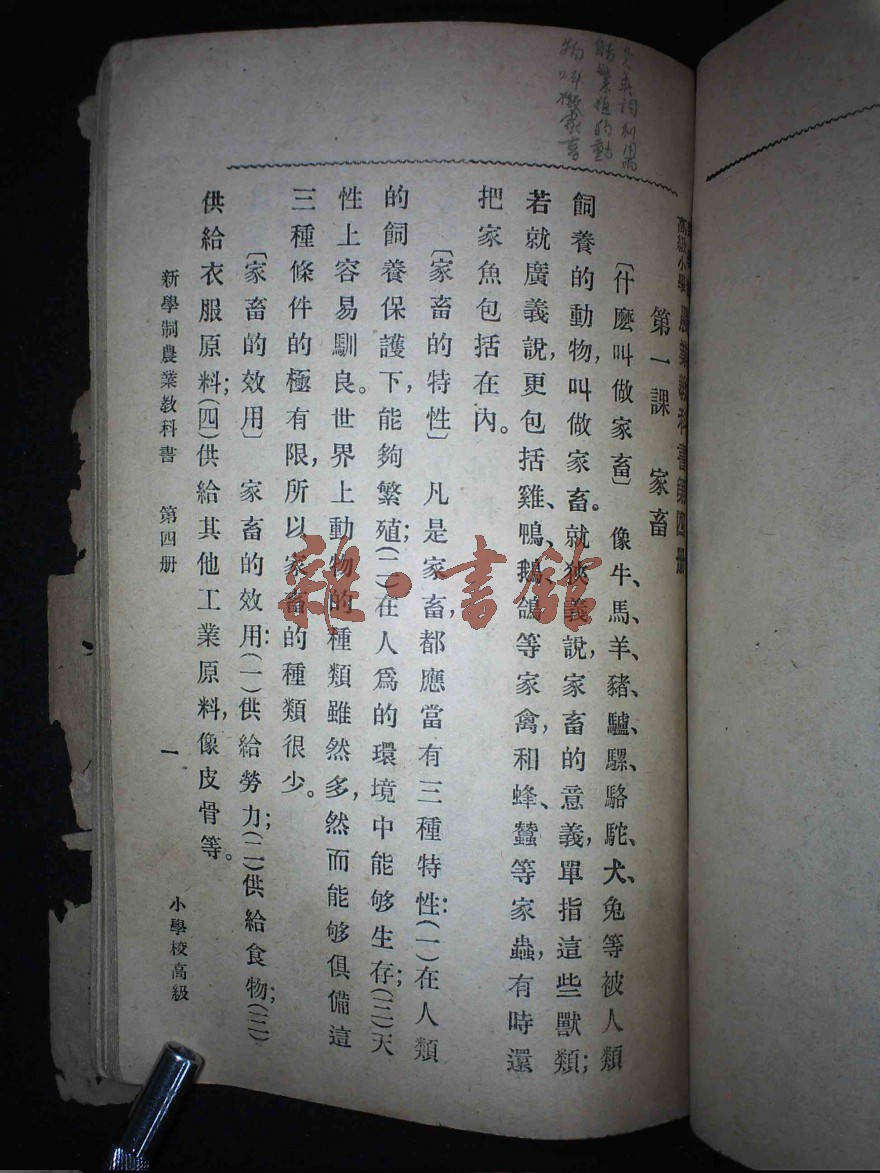 高級小學 農業教科書第四册
第一課　家畜
〔什麼叫做家畜〕　像牛、馬、羊、豬、驢、騾、駱駝、犬、兔等被人類
飼養的動物，叫做家畜。就狹義說，家畜的意義，單指這些獸類；
若就廣義說，更包括雞、鴨、鵝、鴿等家禽，和蜂、蠶等家蟲，有時還
把家魚包括在內。
〔家畜的特性〕　凡是家畜，都應當有三種特性：（一）在人類
的飼養保護下，能夠繁殖；（二）在人爲的環境中能够生存；（三）天
性上容易馴良。世界上動物的種類雖然多，然而能够俱備這
三種條件的極有限，所以家畜的種類很少。
〔家畜的效用〕　家畜的效用：（一）供給勞力；（二）供給食物；（三）
供給衣服原料；（四）供給其他工業原料，像皮骨等。
新學制農業教科書　第四册
一
小學校高級
能繁殖的動
物叫做家畜
雜·書館